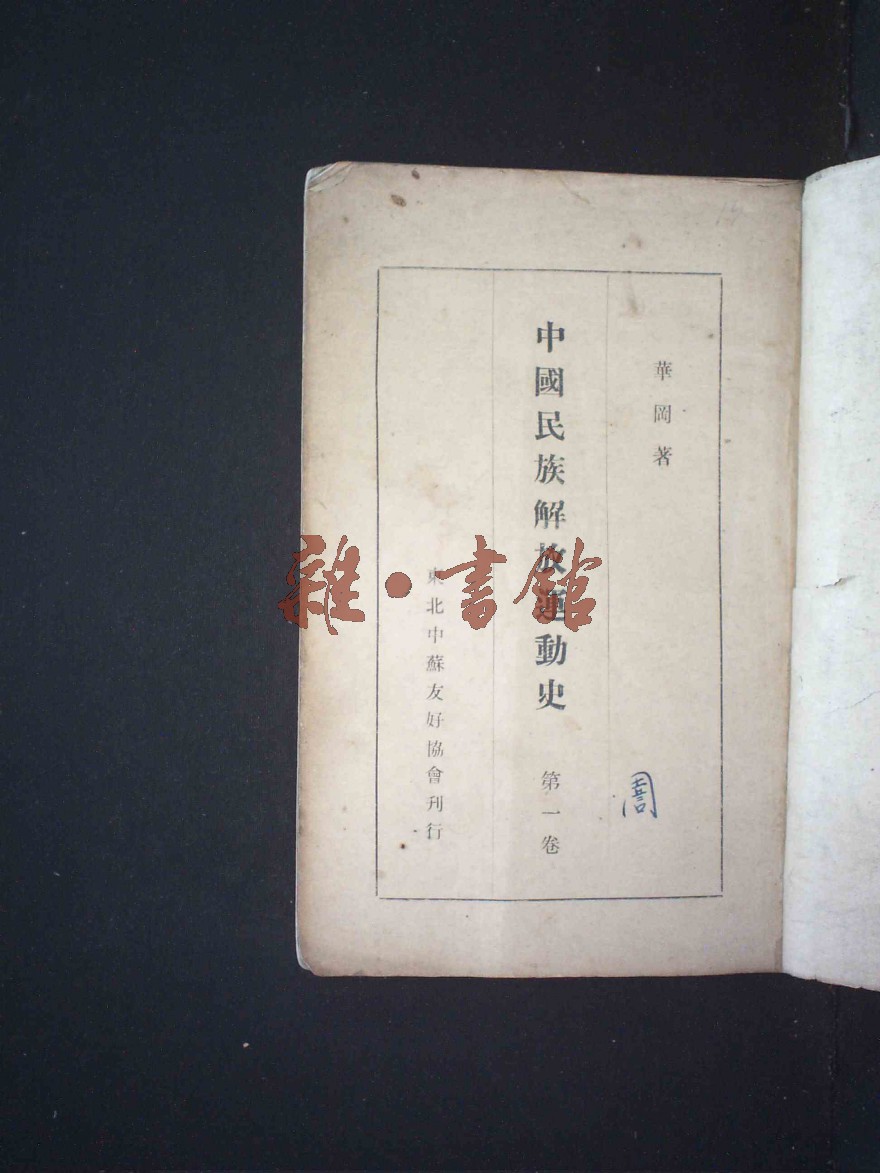 華岡著
中國民族解放運動史 第一卷
東北中蘇友好協會刊行
雜·書館